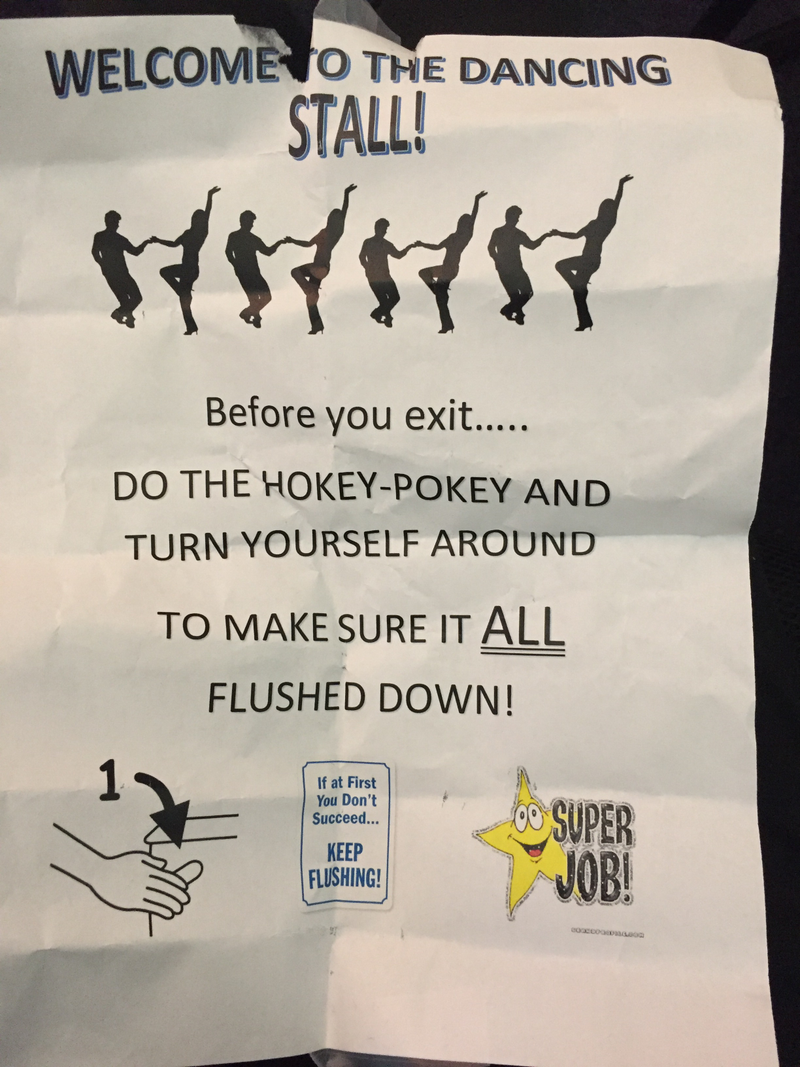 WELCOME TO THE DANCING
STALL!
Before you exit.....
DO THE HOKEY-POKEY AND
TURN YOURSELF AROUND
TO MAKE SURE IT ALL
FLUSHED DOWN!
1
If at First
You Don't
Succeed...
KEEP
FLUSHING!
SUPER
JOB!